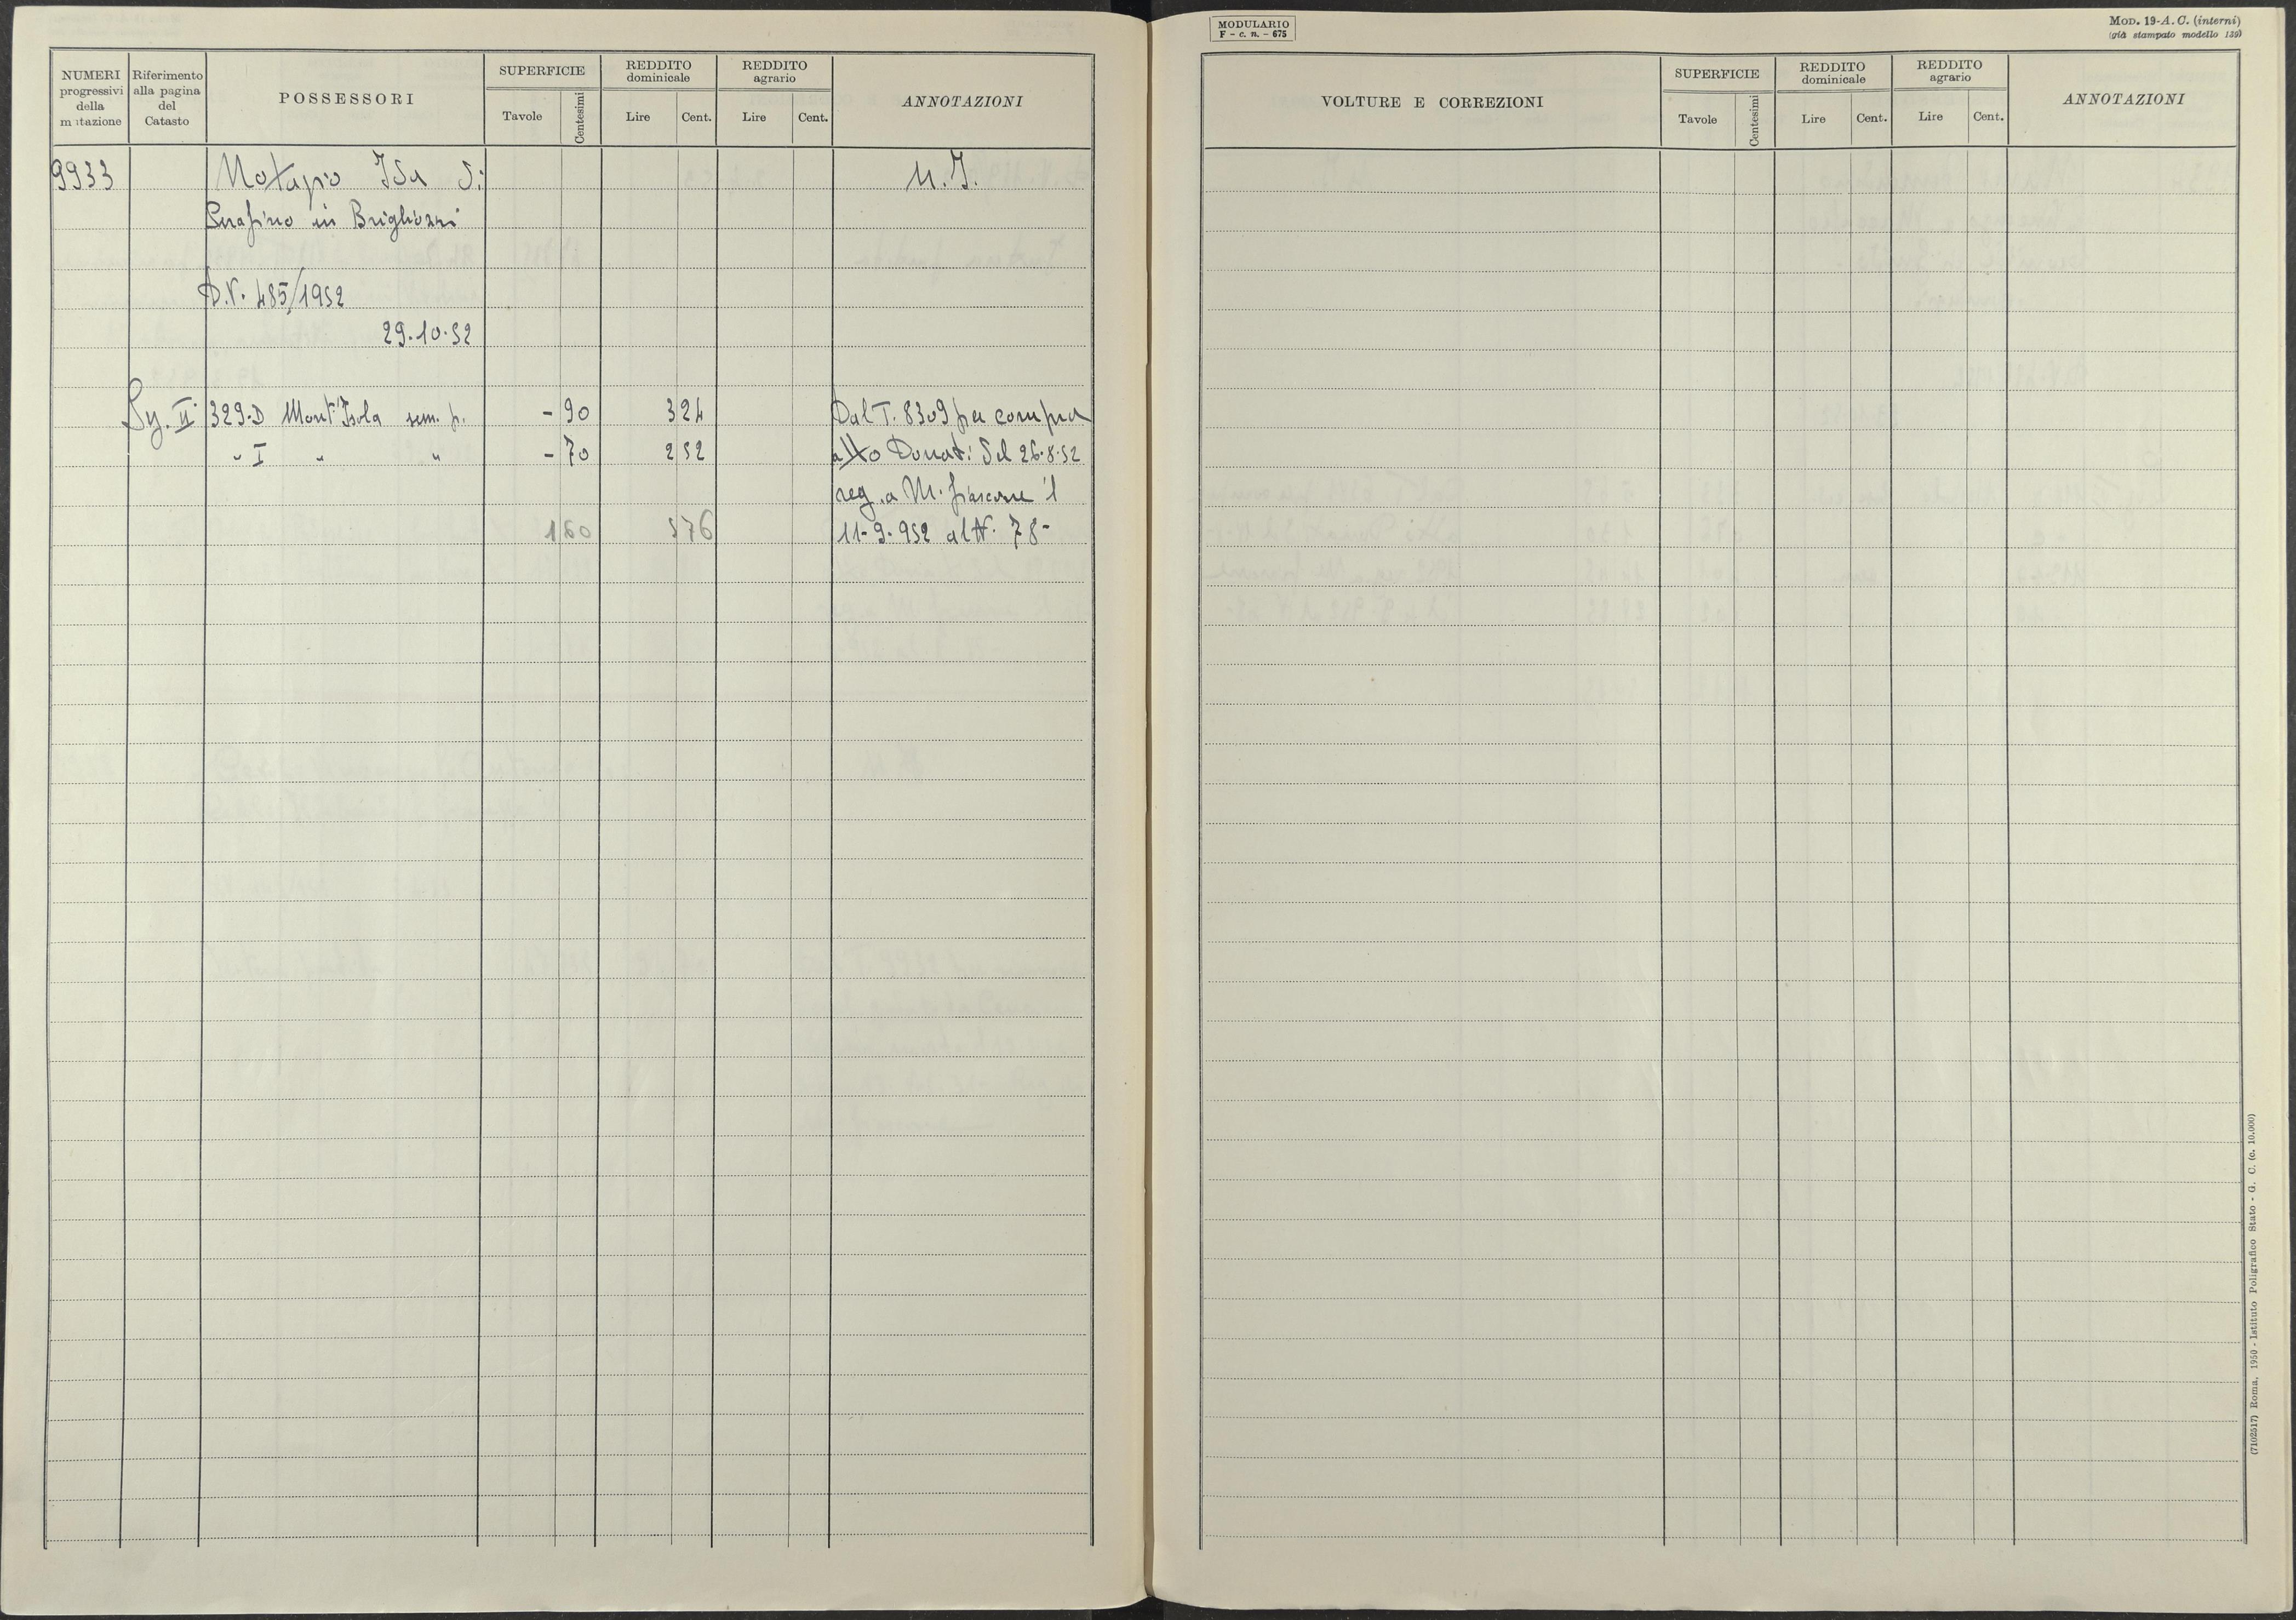 NUMERI progressivi della mutazione
Riferimento alla pagina del Catasto
POSSESSORI
SUPERFICIE
Tavole
Centesimi
REDDITO dominicale
Lire
Cent.
REDDITO agrario
Lire
Cent.
ANNOTAZIONI
9933 Notapio Isa di M.I.
Serafino in Brigliozzi
D.V. 485/1952
29.10.52
Sy. II 329-D Mont'Isola sem. p. - 90 3 24 Dal T. 8309 per compra
" I " " - 70 2 52 atto Donati del 26.8.52
reg. a M. fiascone il
1 60 5 76 11-9-952 al N. 78-
MODULARIO
F - c. n. - 675
MOD. 19-A. C. (interni)
(già stampato modello 139)
VOLTURE E CORREZIONI
SUPERFICIE
Tavole
Centesimi
REDDITO dominicale
Lire
Cent.
REDDITO agrario
Lire
Cent.
ANNOTAZIONI
(7102517) Roma, 1950 - Istituto Poligrafico Stato - G. C. (c. 10.000)